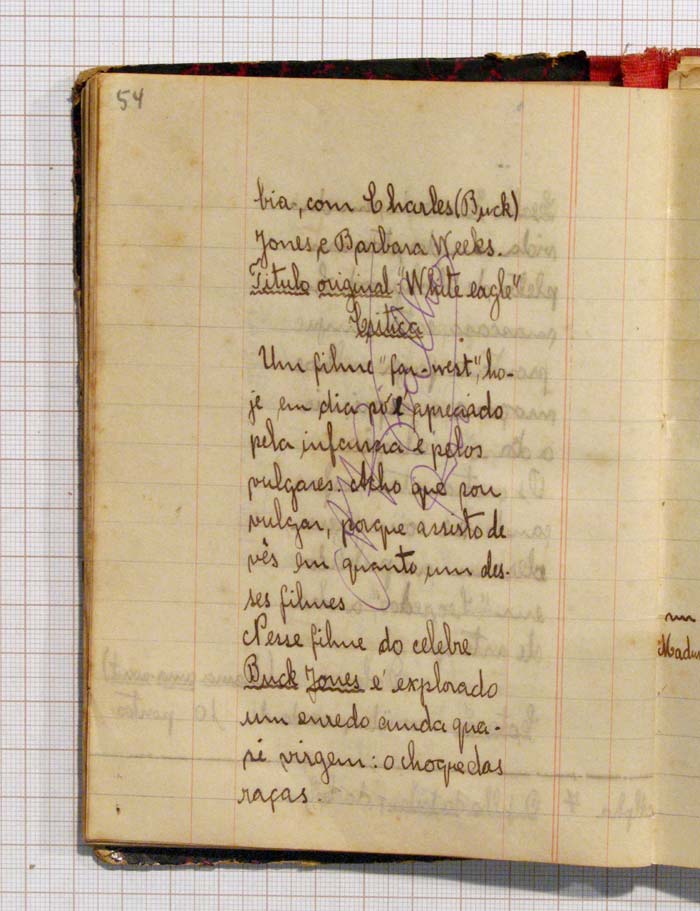 54
bia, com Charles (Buck)
Jones e Barbara Weeks.
Titulo original "White eagle"
Critica
Um filme "far-west", ho-
je em dia só é apreciado
pela infancia e pelos
vulgares. Acho que sou
vulgar, porque assisto de
vês em quanto um des-
ses filmes
Nesse filme do celebre
Buck Jones é explorado
um enredo ainda qua-
si virgem: o choque das
raças.
um